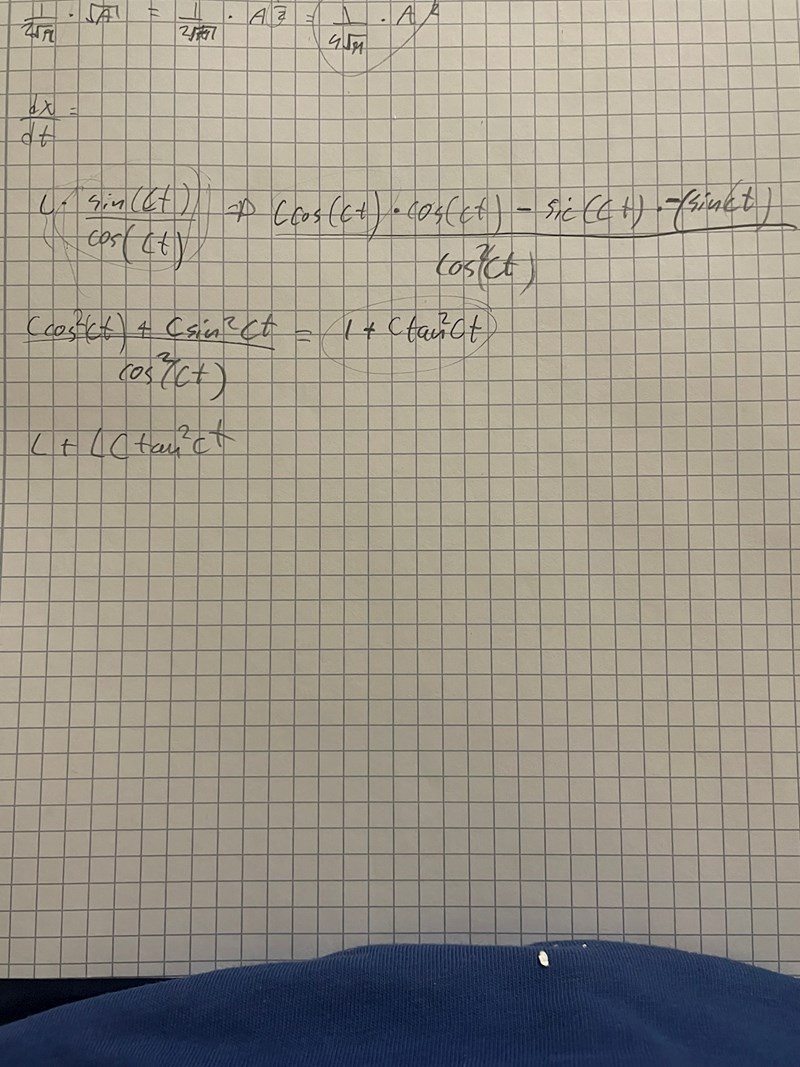 1/2√π · √A = 1/2√π · A^½ = 1/4√π · A
dx/dt =
L · sin(Ct)/cos(Ct) ⇒ (Ccos(Ct) · cos(Ct) − sin(Ct) · −Csin(Ct))/cos²(Ct)
(Ccos²(Ct) + Csin²Ct)/cos²(Ct) = 1 + Ctan²Ct
L + LCtan²Ct